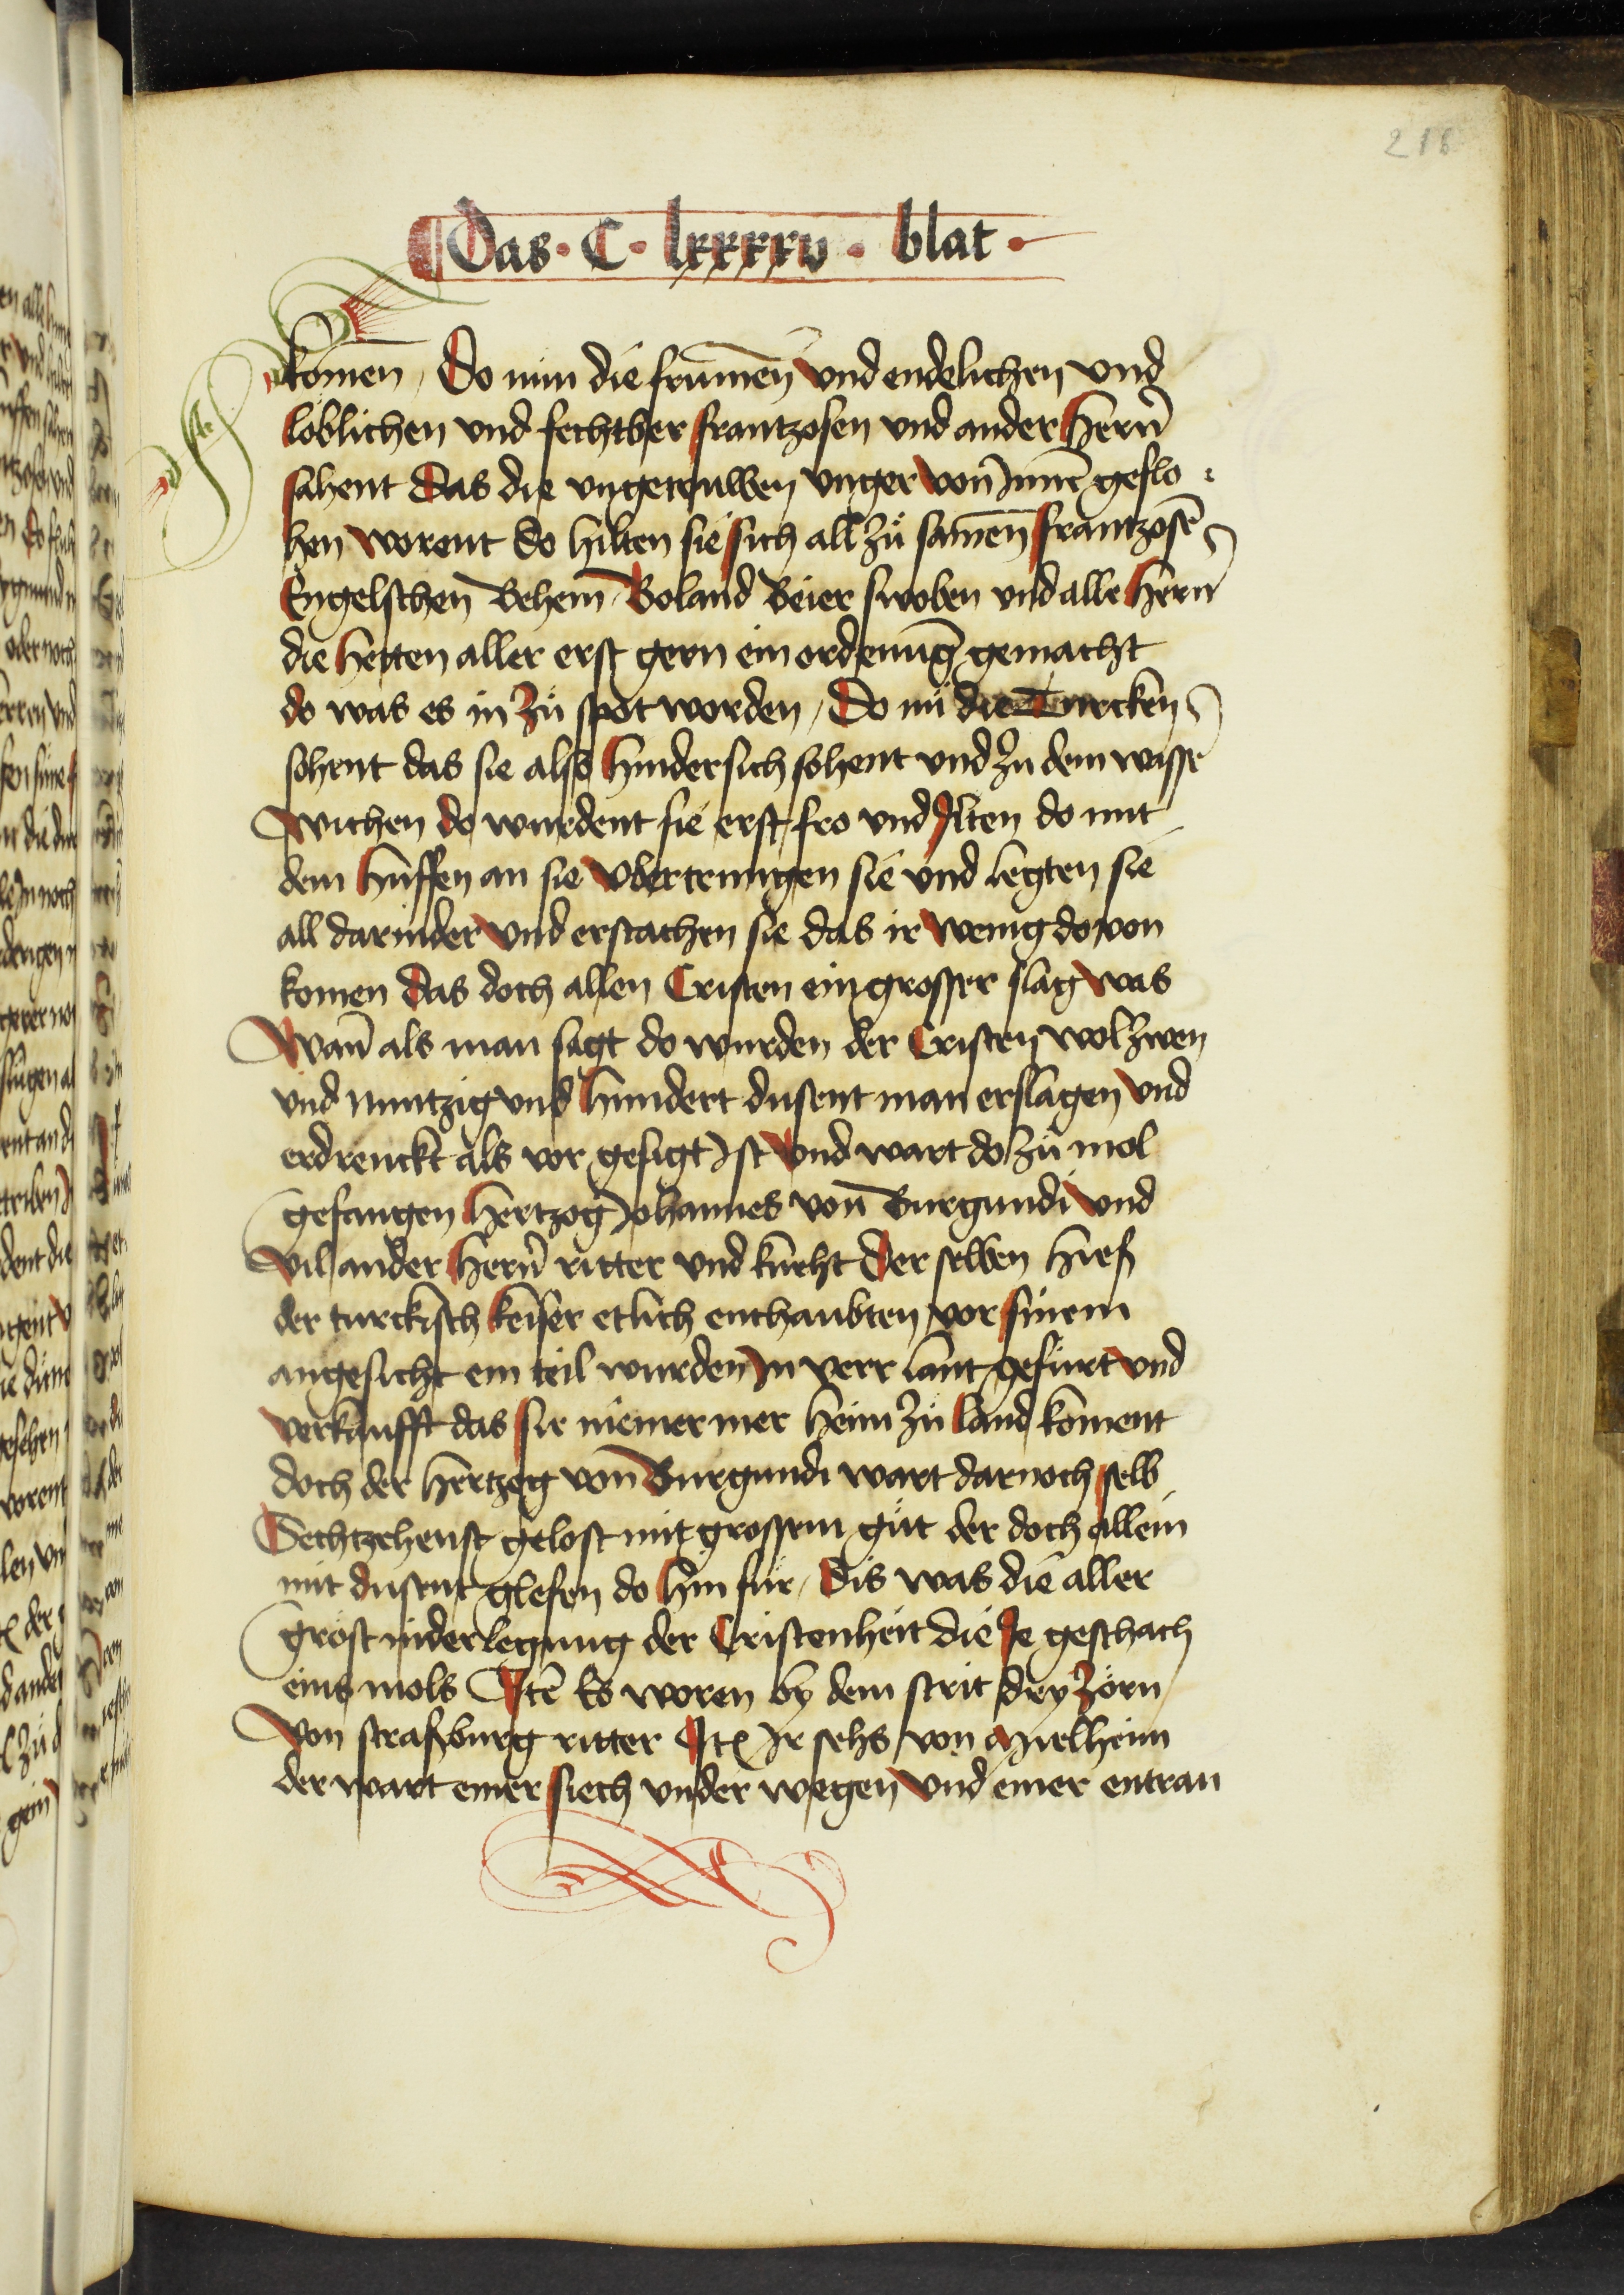 216
Das · C · lxxxxv · blat ·
komen / Do nun die frumen̄ vnd endelichen vnd
loblichen vnd fechtber frantzosen vnd ander hern̄
sahent das die vngetruwen vnger von Inn̄e geflo :
hen worent do hilten sie sich all zů samen̄ frantzosē
Engelschen̄ Behem̄ Boland Beier swoben vnd alle hern̄
die hetten aller erst gern ein ordenūg gemacht
do was es in zů spot worden / Do nū die Turcken
sohent das sie also hinder sich sohent vnd zu dem wasser
wichen do wurdent sie erst fro vnd Ilten do mit
dem huffen an sie vbertrungen sie vnd legten sie
all darnider vnd erstachen sie das ir wenig dovon
komen das doch allen Cristen ein grosser slag was
Wan̄ als man sagt do wurden der Cristen wol zwen
vnd nuntzig vnd hundert dusent man erslagen vnd
erdrenckt als vor gesagt Ist vnd wart do zů mol
gefangen hertzog Johannes von̄ Burgundi vnd
vil ander hern̄ ritter vnd knecht Der selben hieß
der turckisch keiser etlich enthaubten vor sinem
angesicht ein teil wurden In verr lant gefurt vnd
verkaufft das sie niemer mer heim zů land koment
doch der hertzog von̄ Burgundi wart darnoch selb
Sechtzehenst gelost mit grossem gůt der doch allein
mit dusent glefen do hin fur / Dis was die aller
grost niderlegung der Cristenheit die Ie geschach
eins mols Itē Es woren by dem strit dry Zorn
von straßburg ritter Itē Ir sehs von Mielheim
der wart einer siech vnder wegen vnd einer entran